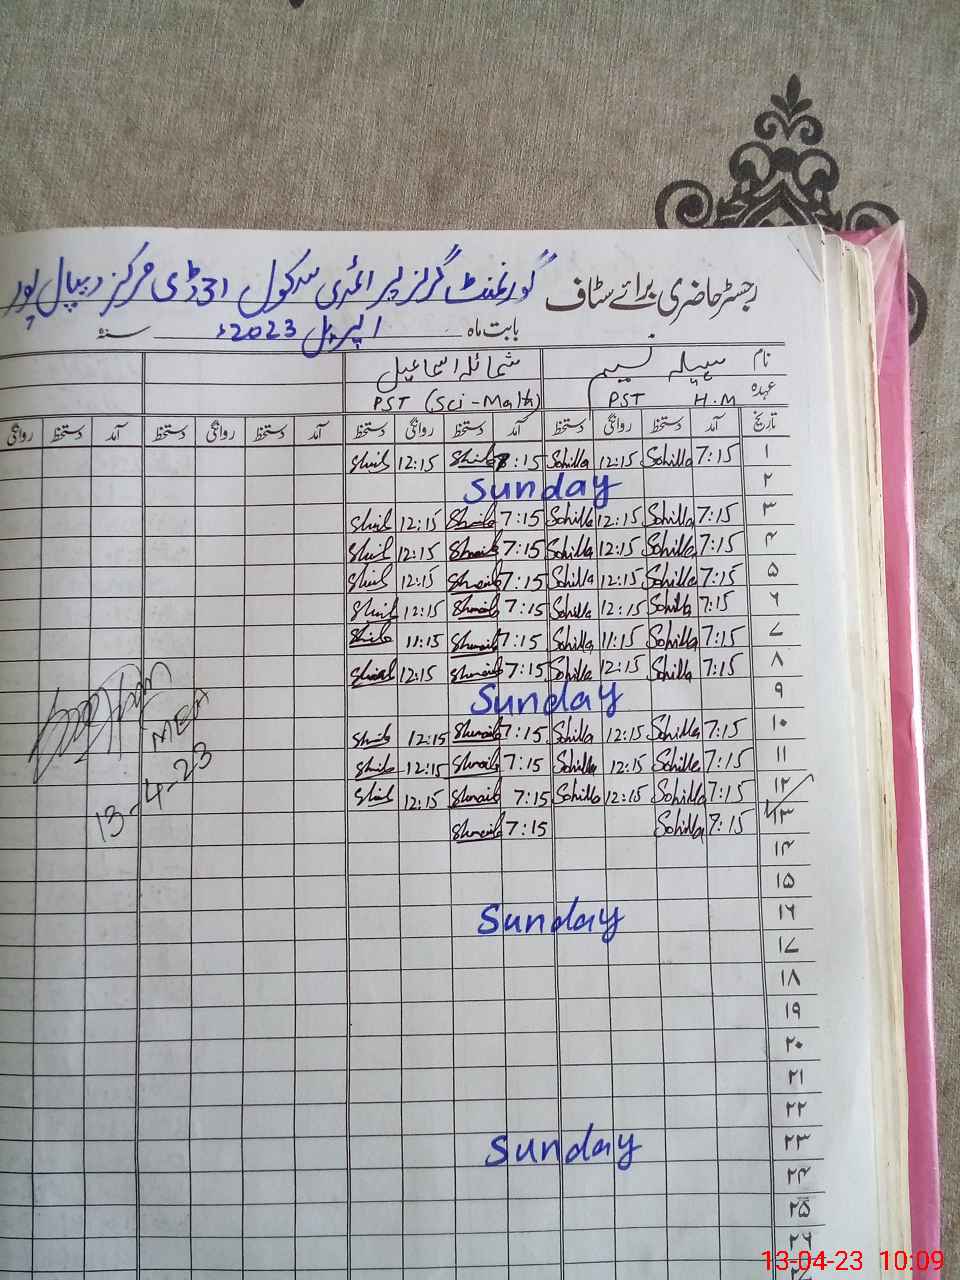 رجسٹر حاضری برائے سٹاف گورنمنٹ گرلز پرائمری سکول 31 ڈی مرکز دیپال پور
بابت ماہ اپریل 2023ء سنہ
نام سہیلہ نسیم شمائلہ اسماعیل
عہدہ H.M PST PST (Sci-Math)
تاریخ آمد دستخط روانگی دستخط آمد دستخط روانگی دستخط آمد دستخط روانگی دستخط آمد دستخط روانگی
۱ 7:15 Sohilla 12:15 Sohilla 8:15 12:15
۲ Sunday
۳ 7:15 Sohilla 12:15 Sohilla 7:15 12:15
۴ 7:15 Sohilla 12:15 Sohilla 7:15 12:15
۵ 7:15 Sohilla 12:15 Sohilla 7:15 12:15
۶ 7:15 Sohilla 12:15 Sohilla 7:15 12:15
۷ 7:15 Sohilla 11:15 Sohilla 7:15 11:15
۸ 7:15 Sohilla 12:15 Sohilla 7:15 12:15
۹ Sunday
۱۰ 7:15 Sohilla 12:15 Sohilla 7:15 12:15
۱۱ 7:15 Sohilla 12:15 Sohilla 7:15 12:15
۱۲ 7:15 Sohilla 12:15 Sohilla 7:15 12:15
۱۳ 7:15 Sohilla 7:15
MEA
13-4-23
۱۴
۱۵
۱۶ Sunday
۱۷
۱۸
۱۹
۲۰
۲۱
۲۲
۲۳ Sunday
۲۴
۲۵
۲۶
13-04-23 10:09